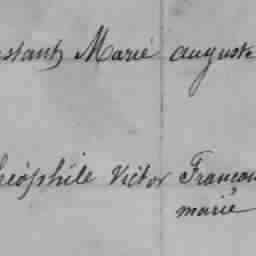 stant Marie auguste
héophile Victor Françoi
marie